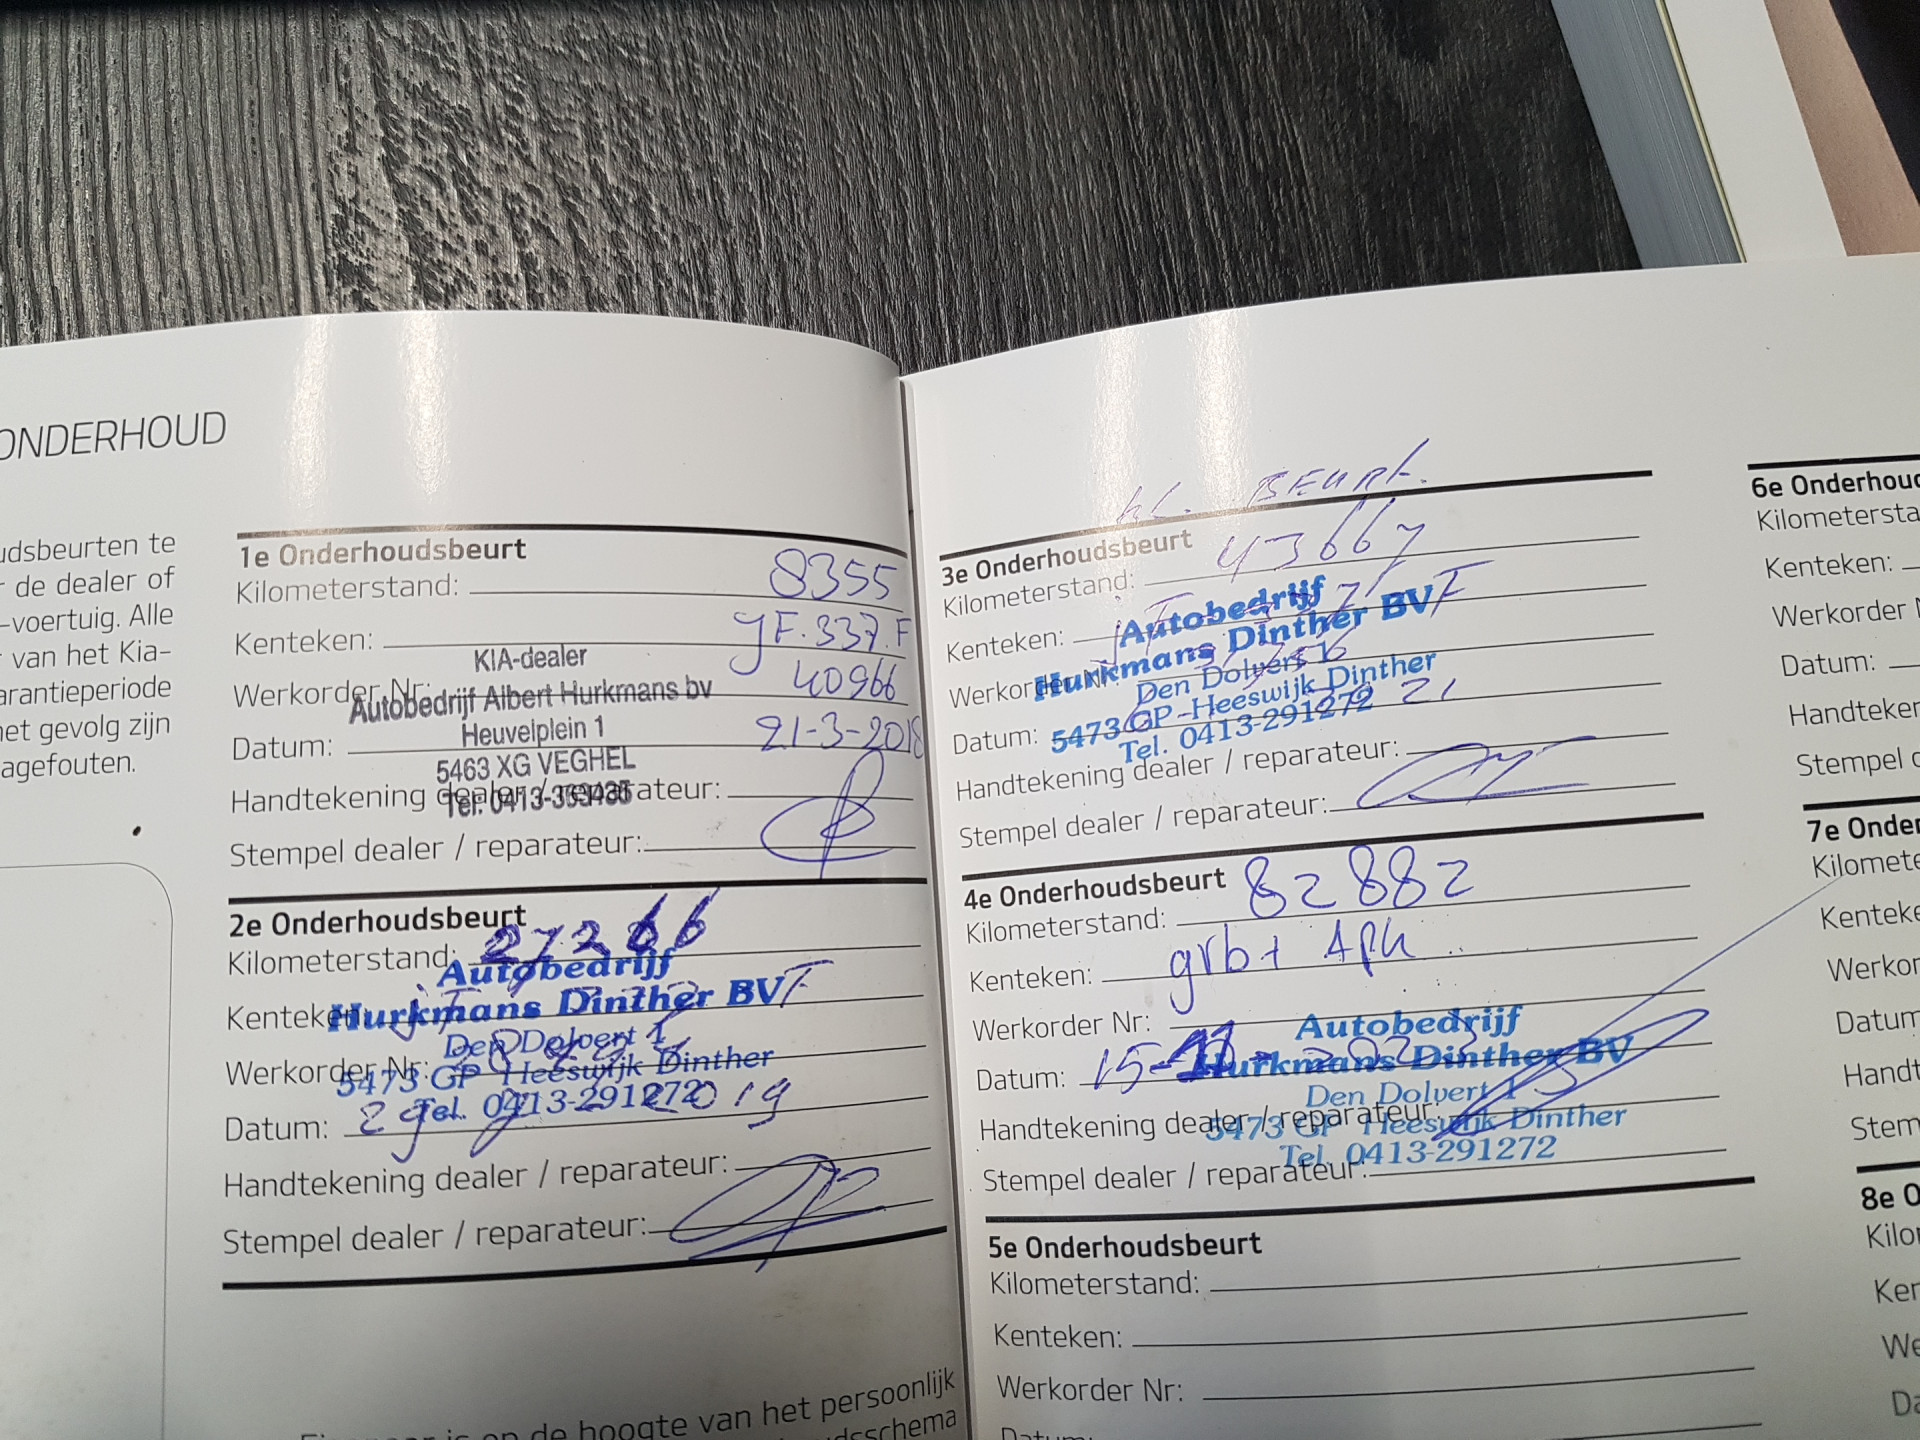 ONDERHOUD
udsbeurten te
r de dealer of
-voertuig. Alle
r van het Kia-
arantieperiode
het gevolg zijn
agefouten.
1e Onderhoudsbeurt
Kilometerstand: 8355
Kenteken: JF.337.F
KIA-dealer
Werkorder Nr: 40966
Autobedrijf Albert Hurkmans bv
Heuvelplein 1
Datum: 21-3-2018
5463 XG VEGHEL
Handtekening dealer / reparateur:
Tel. 0413-
Stempel dealer / reparateur:
2e Onderhoudsbeurt
Kilometerstand: 27266
Autobedrijf
Hurkmans Dinther BV
Kenteken:
Den Dolvert 1
Werkorder Nr:
5473 GP Heeswijk Dinther
Tel. 0413-291272
Datum: 2019
Handtekening dealer / reparateur:
Stempel dealer / reparateur:
Eigenaar is op de hoogte van het persoonlijk
dsschema
kl. BEURT.
3e Onderhoudsbeurt
Kilometerstand: 43667
Autobedrijf
Kenteken:
Hurkmans Dinther BV
Werkorder Nr:
Den Dolvert 1
5473 GP-Heeswijk Dinther
Datum: 21
Tel. 0413-291272
Handtekening dealer / reparateur:
Stempel dealer / reparateur:
4e Onderhoudsbeurt
Kilometerstand: 82882
Kenteken: grb+ Apk
Werkorder Nr:
Autobedrijf
Datum: 15-
Hurkmans Dinther BV
Den Dolvert 1
Handtekening dealer / reparateur:
5473 GP Heeswijk Dinther
Tel. 0413-291272
Stempel dealer / reparateur:
5e Onderhoudsbeurt
Kilometerstand:
Kenteken:
Werkorder Nr:
Datum:
6e Onderhoud
Kilometersta
Kenteken:
Werkorder N
Datum:
Handteken
Stempel d
7e Onder
Kilomete
Kenteke
Werkor
Datum
Handt
Stem
8e O
Kilo
Ken
We
Da